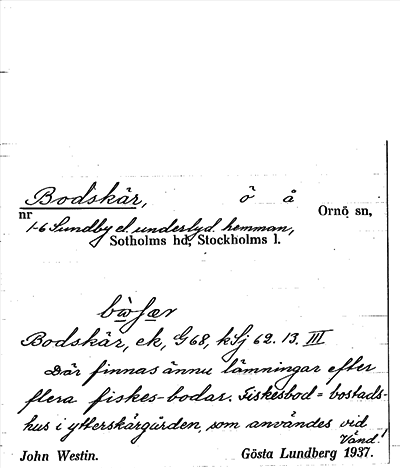 Bodskär, ö å Ornö sn,
nr 1-6 Sundby el. underlyd. hemman,
Sotholms hd, Stockholms l.
Bodskär, ek, G68, kSj 62. 13. III
Där finnas ännu lämningar efter
flera fiskes-bodar. Fiskesbod = bostads-
hus i ytterskärgården, som användes vid
Vänd!
John Westin. Gösta Lundberg 1937.